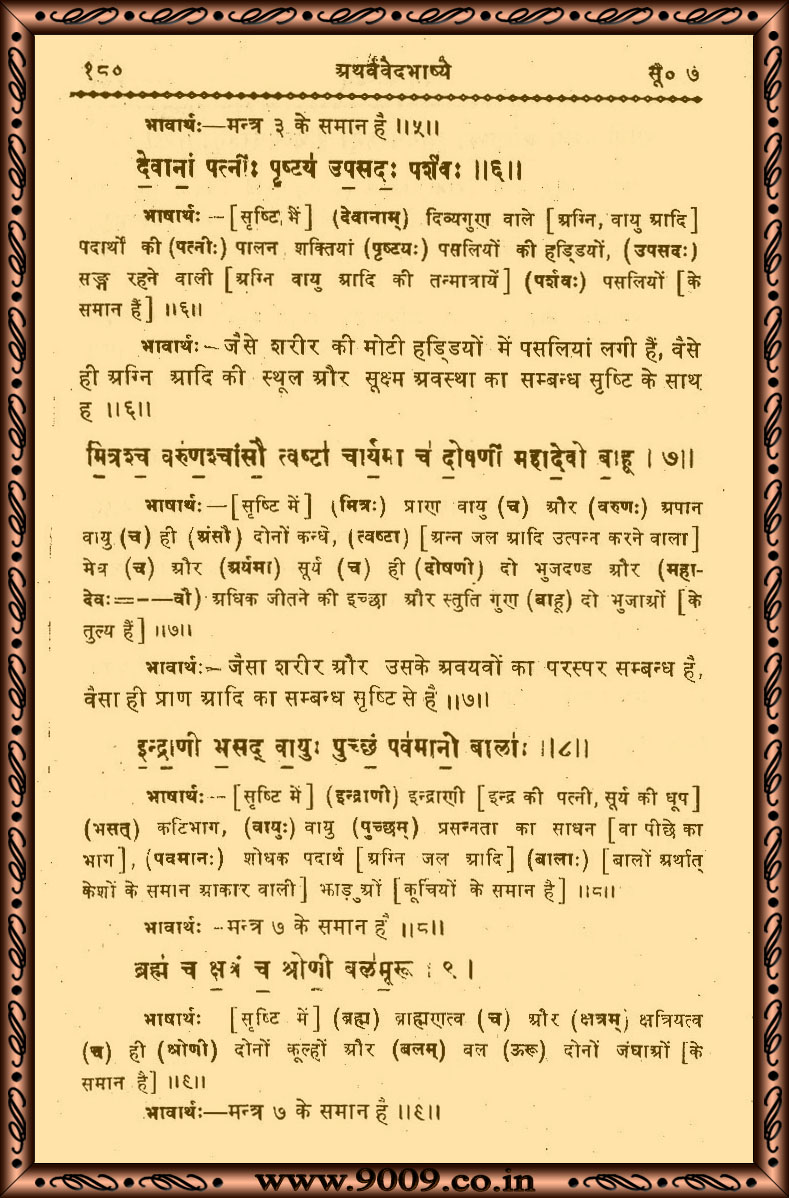 १८० अथर्ववेदभाष्ये सू० ७
भावार्थः—मन्त्र ३ के समान है ॥५॥
दे॒वानां॒ पत्नीः॑ पृ॒ष्टय॑ उप॒सदः॒ पर्श॑वः ॥६॥
भाषार्थः –[सृष्टि में] (देवानाम्) दिव्यगुण वाले [अग्नि, वायु आदि]
पदार्थों की (पत्नीः) पालन शक्तियां (पृष्टयः) पसलियों की हड्डियों, (उपसदः)
सङ्ग रहने वाली [अग्नि वायु आदि की तन्मात्रायें] (पर्शवः) पसलियों [के
समान हैं] ॥६॥
भावार्थः – जैसे शरीर की मोटी हड्डियों में पसलियां लगी हैं, वैसे
ही अग्नि आदि की स्थूल और सूक्ष्म अवस्था का सम्बन्ध सृष्टि के साथ
ह ॥६॥
मि॒त्रश्च॒ वरु॑ण॒श्चांसौ॒ त्वष्टा॑ चार्य॒मा च॑ दो॒षणी॑ महादे॒वो बा॒हू । ७॥
भाषार्थः—[सृष्टि में] (मित्रः) प्राण वायु (च) और (वरुणः) अपान
वायु (च) ही (अंसौ) दोनों कन्धे, (त्वष्टा) [अन्न जल आदि उत्पन्न करने वाला]
मेघ (च) और (अर्यमा) सूर्य (च) ही (दोषणी) दो भुजदण्ड और (महा-
देवः=-—वौ) अधिक जीतने की इच्छा और स्तुति गुण (बाहू) दो भुजाओं [के
तुल्य हैं] ॥७॥
भावार्थः– जैसा शरीर और उसके अवयवों का परस्पर सम्बन्ध है,
वैसा ही प्राण आदि का सम्बन्ध सृष्टि से है ॥७॥
इ॒न्द्रा॒णी भ॒सद् वा॒युः पुच्छं॒ पव॑मानो॒ बालाः॑ ॥८॥
भाषार्थः–[सृष्टि में] (इन्द्राणी) इन्द्राणी [इन्द्र की पत्नी, सूर्य की धूप]
(भसत्) कटिभाग, (वायुः) वायु (पुच्छम्) प्रसन्नता का साधन [वा पीछे का
भाग], (पवमानः) शोधक पदार्थ [अग्नि जल आदि] (बालाः) [बालों अर्थात्
केशों के समान आकार वाली] झाड़ुओं [कूचियों के समान है] ॥८॥
भावार्थः –मन्त्र ७ के समान है ॥८॥
ब्रह्म॑ च क्ष॒त्रं च॒ श्रोणी॒ बल॑मू॒रू । ९ ।
भाषार्थः [सृष्टि में] (ब्रह्म) ब्राह्मणत्व (च) और (क्षत्रम्) क्षत्रियत्व
(च) ही (श्रोणी) दोनों कूल्हों और (बलम्) बल (ऊरू) दोनों जंघाओं [के
समान है] ॥९॥
भावार्थः—मन्त्र ७ के समान है ॥९॥
www.9009.co.in